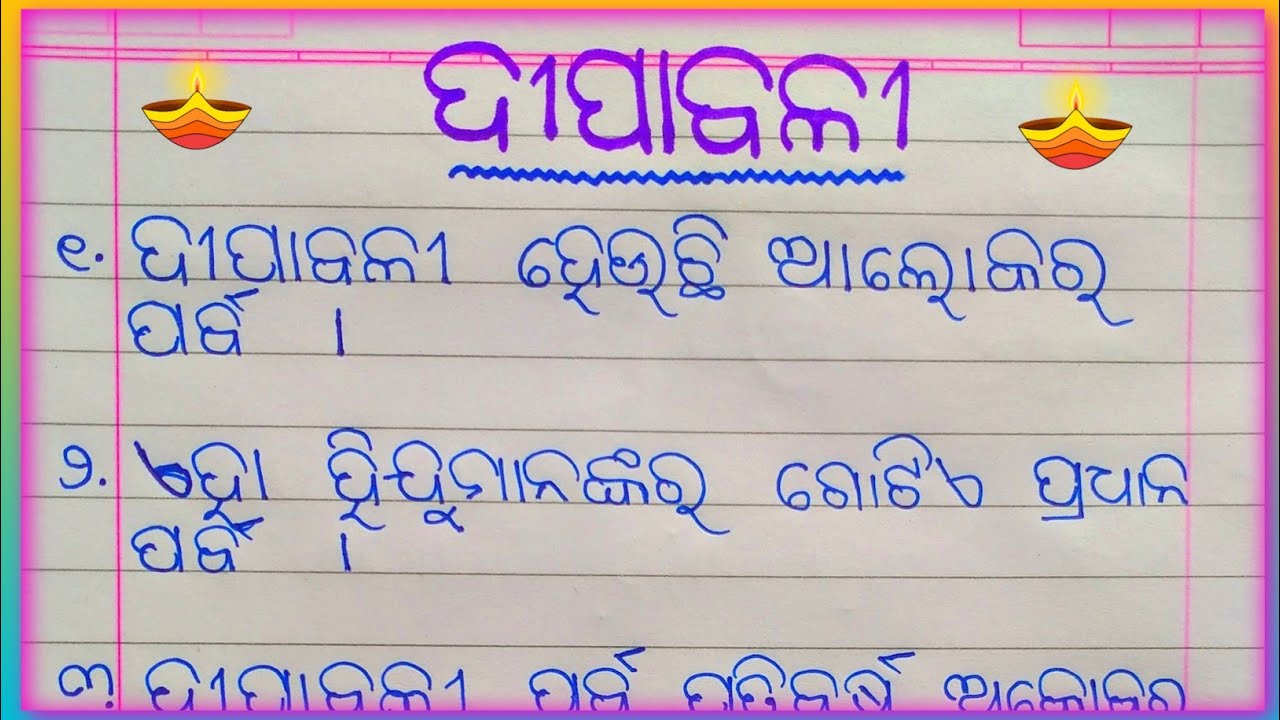 ଦୀପାବଳୀ
୧. ଦୀପାବଳୀ ହେଉଛି ଆଲୋକର
ପର୍ବ ।
୨. ଏହା ହିନ୍ଦୁମାନଙ୍କର ଗୋଟିଏ ପ୍ରଧାନ
ପର୍ବ ।
୩. ଦୀପାବଳୀ ପର୍ବ ପ୍ରତିବର୍ଷ